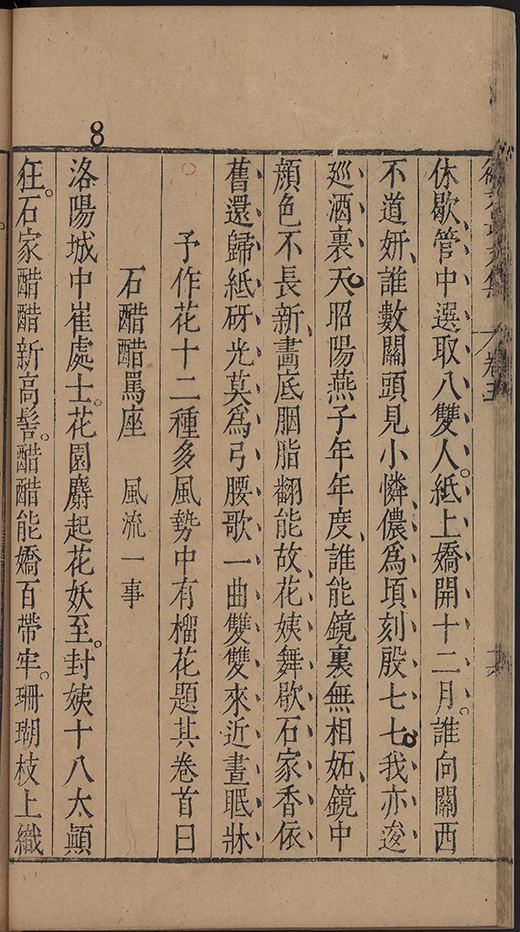 8
休歇管中選取八雙人。紙上嬌開十二月。誰向關西
不道妍、誰數關頭見小憐、儂爲頃刻殷七七、我亦逡
巡酒裏天、昭陽燕子年年度、誰能鏡裏無相妬、鏡中
顔色不長新、畵底胭脂翻能故、花姨舞歇石家香、依
舊還歸紙砑光、莫爲弓腰歌一曲、雙雙來近晝眠牀
予作花十二種多風勢中有榴花題其卷首曰
石醋醋罵座 風流一事
洛陽城中崔處士。花園麝起花妖至。封姨十八太顛
狂。石家醋醋新高髻。醋醋能嬌百帶牢。珊瑚枝上織